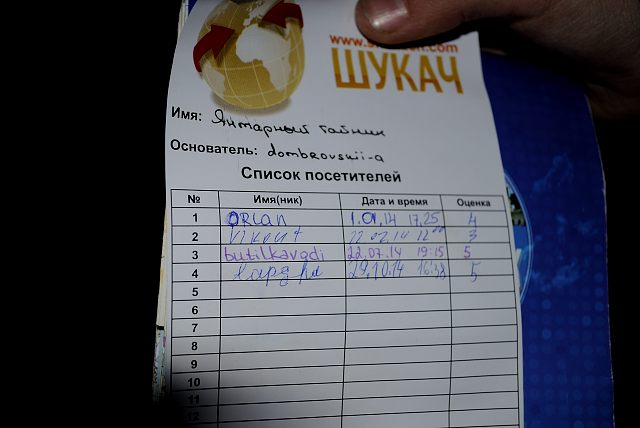 ШУКАЧ
Имя: Янтарный тайник
Основатель: dombrovskii-a
Список посетителей
№ Имя(ник) Дата и время Оценка
1 ORLAN 1.01.14 17,25 4
2 22.02.14 12⁰⁰ 3
3 butilkavodi 22.07.14 19:15 5
4 29.10.14 16:38 5
5
6
7
8
9
10
11
12